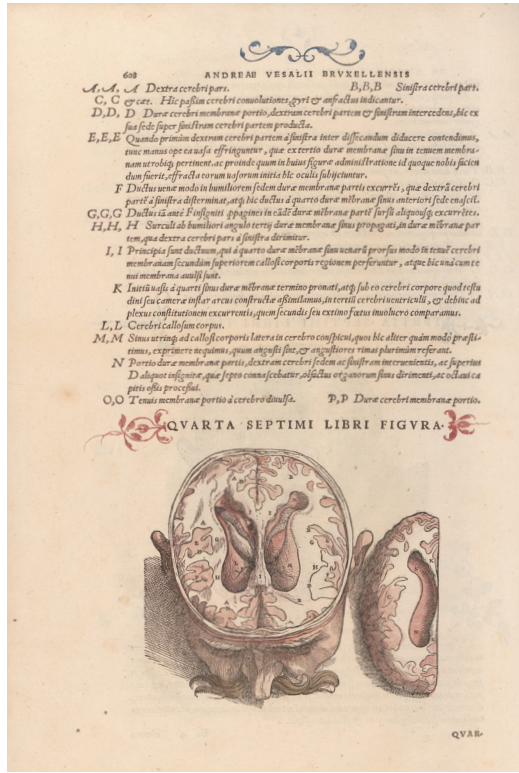 608 ANDREAE VESALII BRVXELLENSIS
A, A, A Dextra cerebri pars. B, B, B Sinistra cerebri pars.
C, C & cæt. Hic passim cerebri conuolutiones, gyri & anfractus indicantur.
D, D, D Duræ cerebri membranæ portio, dextram cerebri partem & sinistram intercedens, hic ex
sua sede super sinistram cerebri partem producta.
E, E, E Quando primùm dextram cerebri partem à sinistra inter dissecandum diducere contendimus,
tunc manus ope ea uasa effringuntur, quæ ex tertio duræ membranæ sinu in tenuem membra-
nam utrobiq; pertinent. ac proinde quum in huius figuræ administratione id quoque nobis facien
dum fuerit, effracta eorum uasorum initia hîc oculis subijciuntur.
F Ductus uenæ modo in humiliorem sedem duræ membranæ partis excurrẽs, quæ dextrã cerebri
partẽ à sinistra disterminat, atq; hic ductus à quarto duræ mẽbranæ sinus anteriori sede enascit.
G, G, G Ductus iã antè F insigniti ppagines in eãdẽ duræ mẽbranæ partẽ sursũ aliquousq; excurrẽtes.
H, H, H Surculi ab humiliori angulo tertij duræ membranæ sinus propagati, in duræ mẽbranæ par
tem, qua dextra cerebri pars à sinistra dirimitur.
I, I Principia sunt ductuum, qui à quarto duræ mẽbranæ sinu uenarũ prorsus modo in tenuẽ cerebri
membranam secundùm superiorem callosi corporis regionem perferuntur, atque hîc unà cum te
nui membrana auulsi sunt.
K Initiũ uasis à quarti sinus duræ mẽbranæ termino pronati, atq; sub eo cerebri corpore quod testu
dini seu cameræ instar arcus constructæ assimilamus, in tertiũ cerebri uentriculũ, & dehinc ad
plexus constitutionem excurrentis, quem secundis seu extimo fœtus inuolucro comparamus.
L, L Cerebri callosum corpus.
M, M Sinus utrinq; ad callosi corporis latera in cerebro conspicui, quos hîc aliter quàm modò præsti-
timus, exprimere nequimus, quum angusti sint, & angustiores rimas plurimùm referant.
N Portio duræ membranæ partis, dextram cerebri sedem ac sinistram interuenientis, ac superius
D aliquot insignitæ, quæ septo connascebatur, olfactus organorum sinus dirimenti, ac octaui ca
pitis ossis processui.
O, O Tenuis membranæ portio à cerebro diuulsa. P, P Duræ cerebri membranæ portio.
QVARTA SEPTIMI LIBRI FIGVRA.
QVAR-